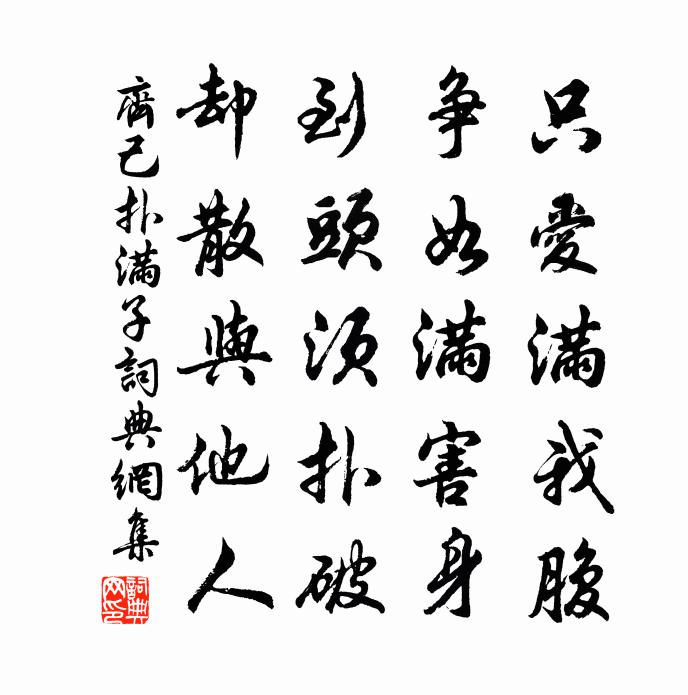 只愛滿我腹
争如滿害身
到頭須扑破
却散與他人
齊己扑滿子詞典網集
詞典网印